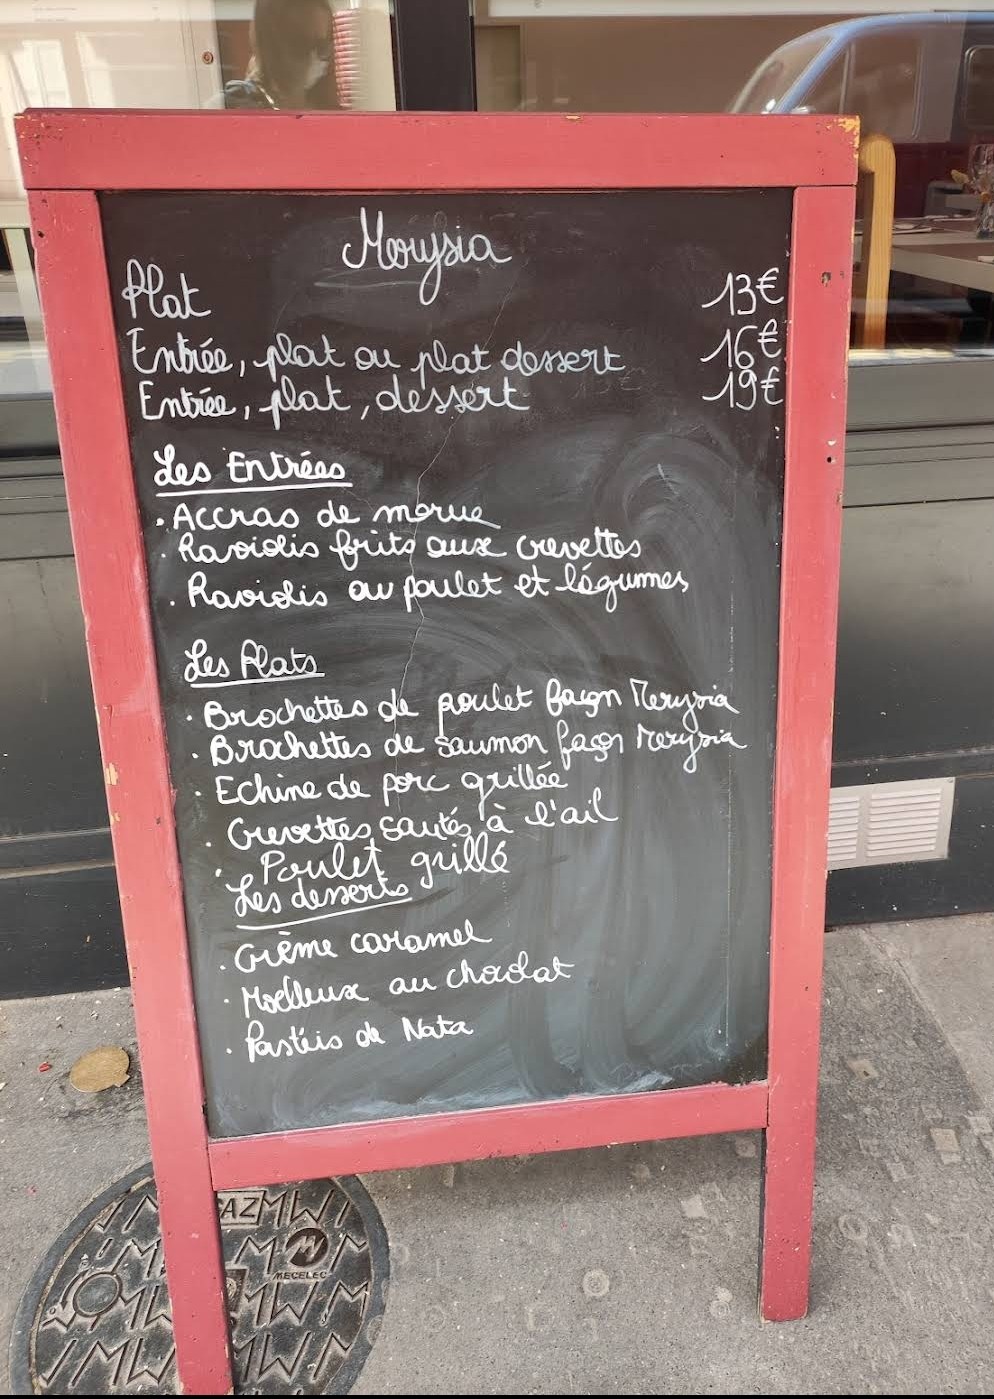 Merysia
Plat 13€
Entrée, plat ou plat dessert 16€
Entrée, plat, dessert 19€
Les Entrées
. Accras de morue
. Raviolis frits aux crevettes
. Raviolis au poulet et légumes
Les Plats
. Brochettes de poulet façon Merysia
. Brochettes de saumon façon Merysia
. Echine de porc grillée
. Crevettes sautés à l'ail
. Poulet grillé
Les desserts
. Crème caramel
. Moelleux au chocolat
. Pastéis de Nata
GAZ
MECELEC